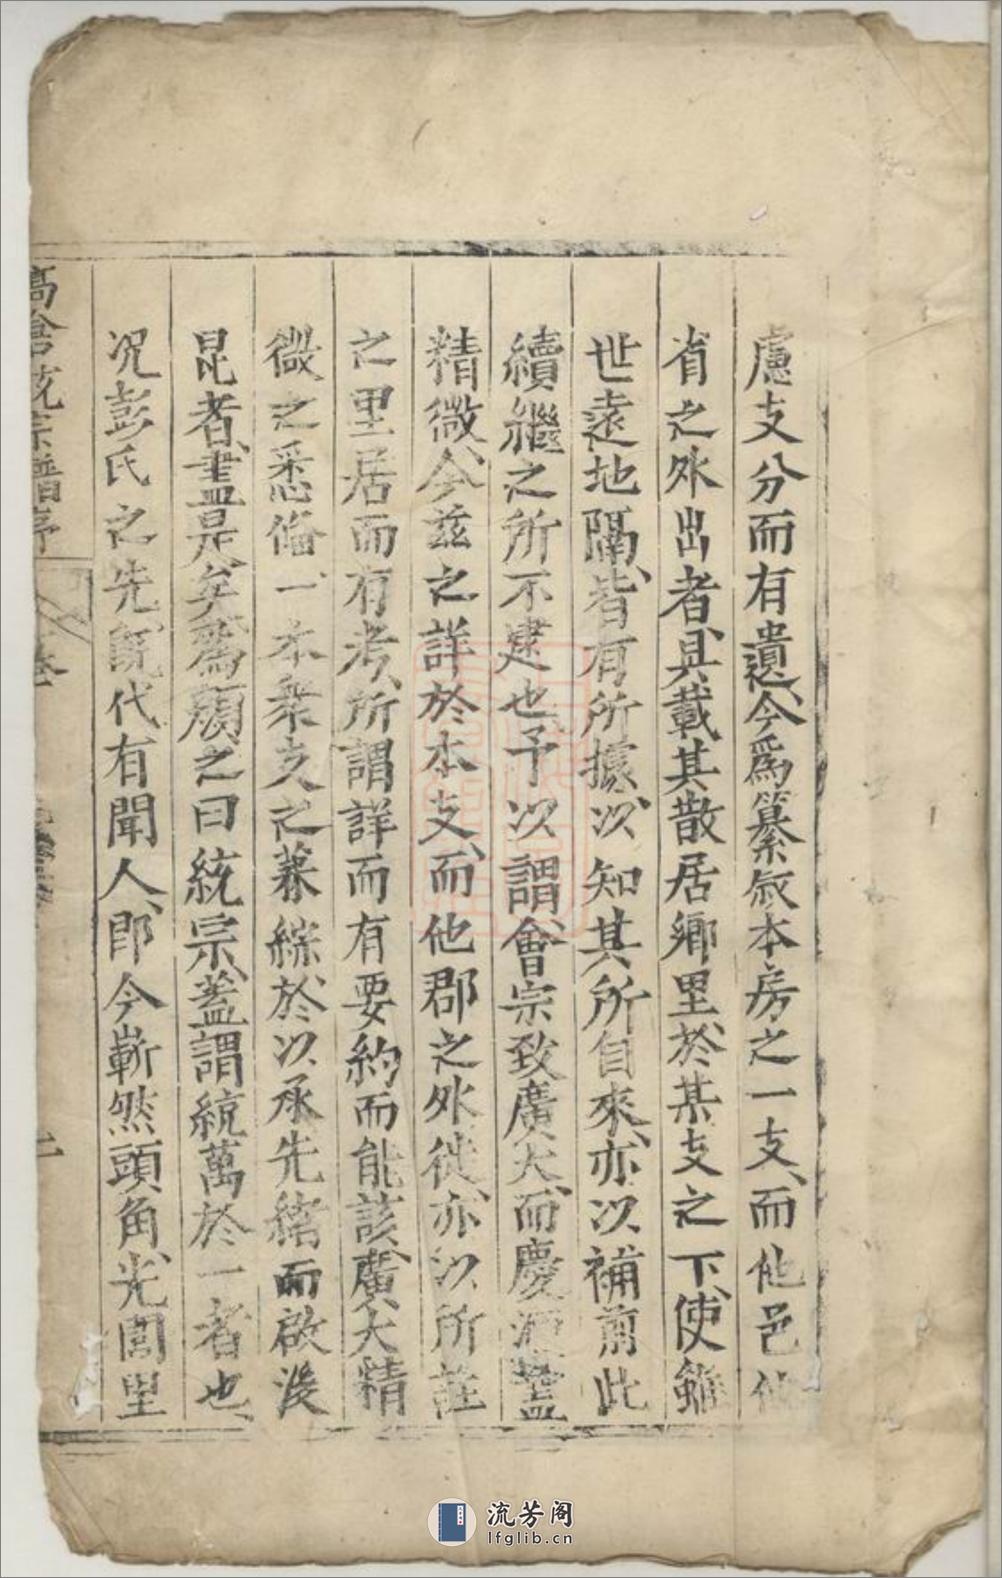 慮支分而有遺、今爲纂叙本房之一支、而他邑他
省之外出者、具載其散居鄉里、於某支之下、使雖
世遠地隔、皆有所據、以知其所自來、亦以補前此
續繼之所不逮也、予以謂會宗致廣大、而慶源盡
精微、今茲之詳於本支、而他郡之外徙、亦以所註
之里居而有考、所謂詳而有要、約而能該、廣大精
微之悉俻、一本衆支之兼綜、於以承先緒而啟後
昆者、盡是矣、爲顏之曰統宗、蓋謂統萬於一者也、
况彭氏之先、旣代有聞人、卽今嶄然頭角、光閭里
宗譜序
二
流芳阁
lfglib.cn